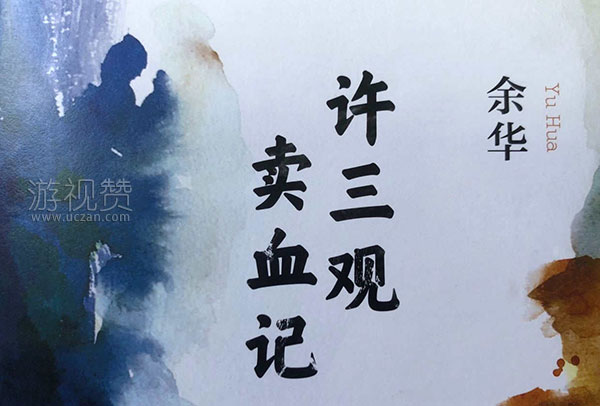 余华
Yu Hua
许三观
卖血记
游视赞
www.uczan.com